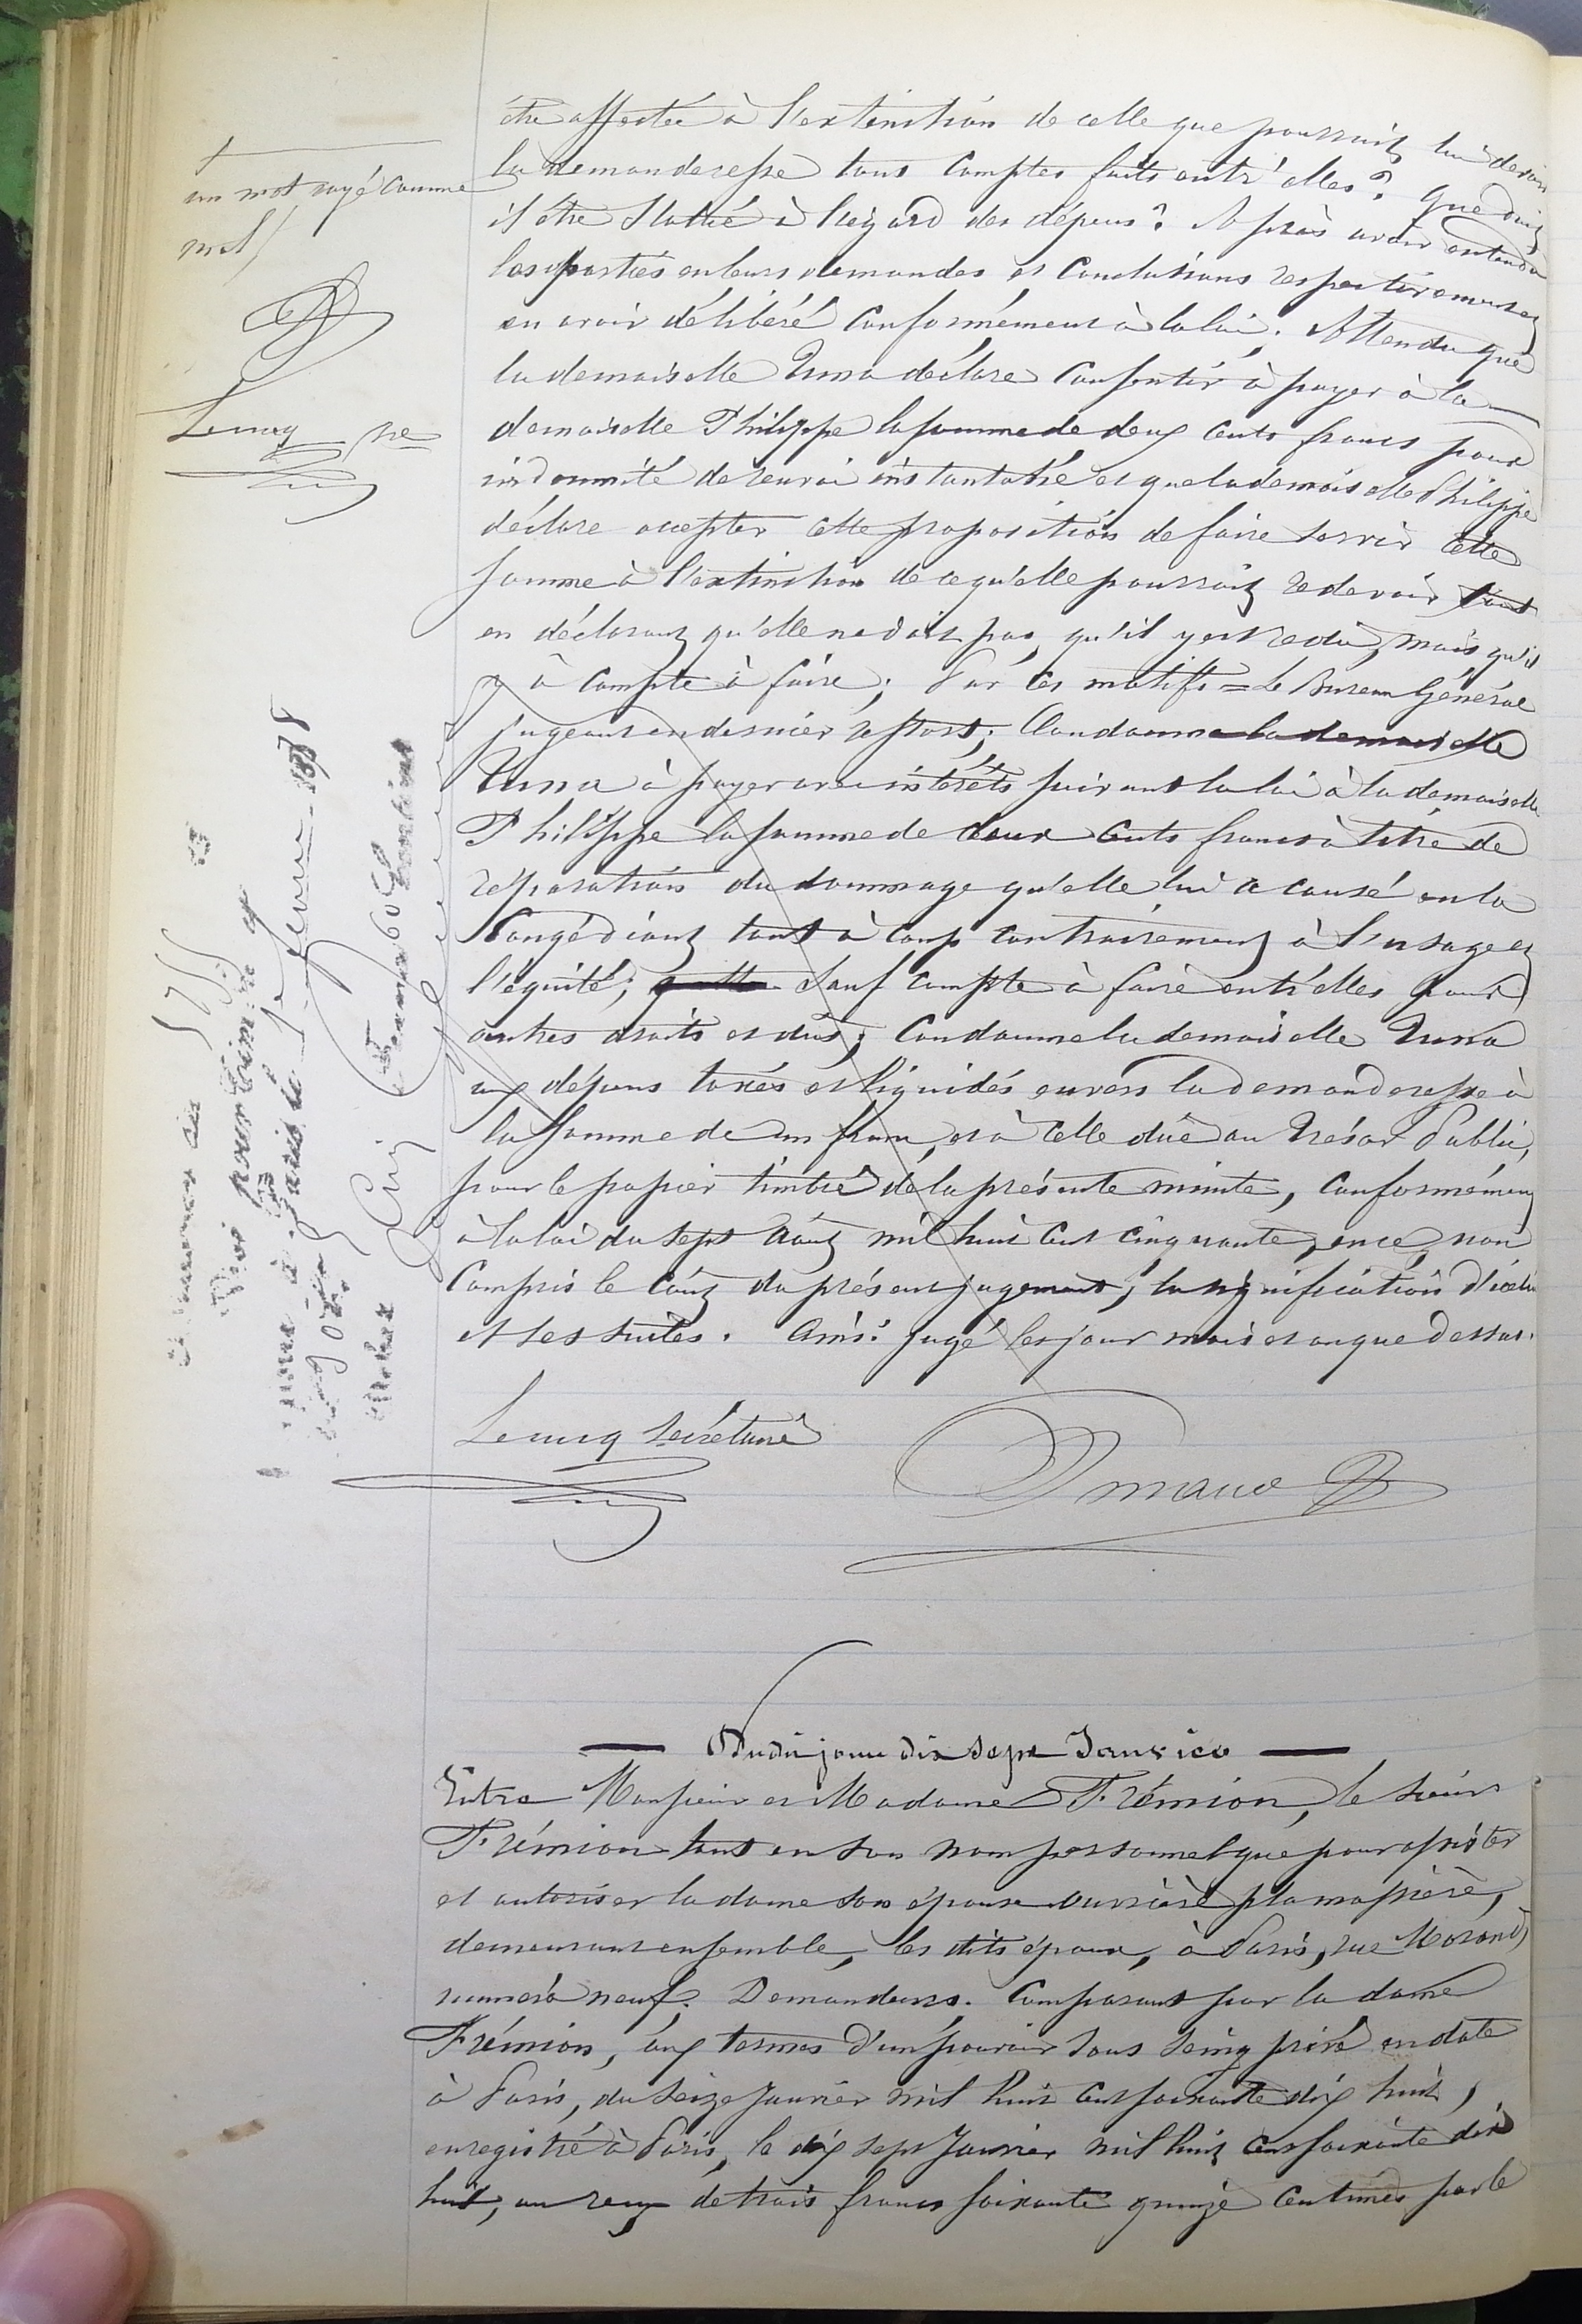 un mot rayé comme
nul
Lecucq
être affectée à l'extinction de celle que pourrait lui devoir
la demanderesse tous comptes faits entr'elles? Que doit
il être statué à l'égard des dépens? Après avoir entendu
les parties en leurs demandes et conclusions respectivement et
en avoir délibéré conformément à la loi; Attendu que
la demoiselle déclare consentir à payer à la
demoiselle Philippe la somme de deux cents francs pour
indemnité de renvoi instantané et que la demoiselle Philippe
déclare accepter cette proposition de faire servir cette
somme à l'extinction de ce qu'elle pourrait redevoir tout
en déclarant qu'elle ne doit pas, qu'il y est redû, mais qu'il
y a compte à faire; Par ces motifs = Le Bureau Général
jugeant en dernier ressort; Condamne la demoiselle
à payer avec intérêts suivant la loi à la demoiselle
Philippe la somme de deux cents francs à titre de
réparation du dommage qu'elle lui a causé en la
congédiant tout à coup contrairement à l'usage et
l'équité; sauf compte à faire entr'elles pour
autres droits et dûs; Condamne la demoiselle
aux dépens taxés et liquidés envers la demanderesse à
la somme de un franc, et à celle dûe au Trésor Public,
pour le papier timbré de la présente minute, conformément
à la loi du sept Août mil huit cent cinquante, ence, non
compris le coût du présent jugement, la signification d'icelui
et ses suites. Ainsi jugé les jour mois et an que dessus.
Lecucq secrétaire
Dudit jour dix sept Janvier
Entre Monsieur et Madame Frémion, le sieur
Frémion tant en son nom personnel que pour assister
et autoriser la dame son épouse ouvrière plumassière,
demeurant ensemble, les dits époux, à Paris, rue Morand,
numéro neuf. Demandeurs. Comparant par la dame
Frémion, aux termes d'un pouvoir sous seing privé en date
à Paris, du seize Janvier mil huit cent soixante dix huit,
enregistré à Paris, le dix sept Janvier mil huit cent soixante dix
huit, au reçu de trois francs soixante quinze centimes par le